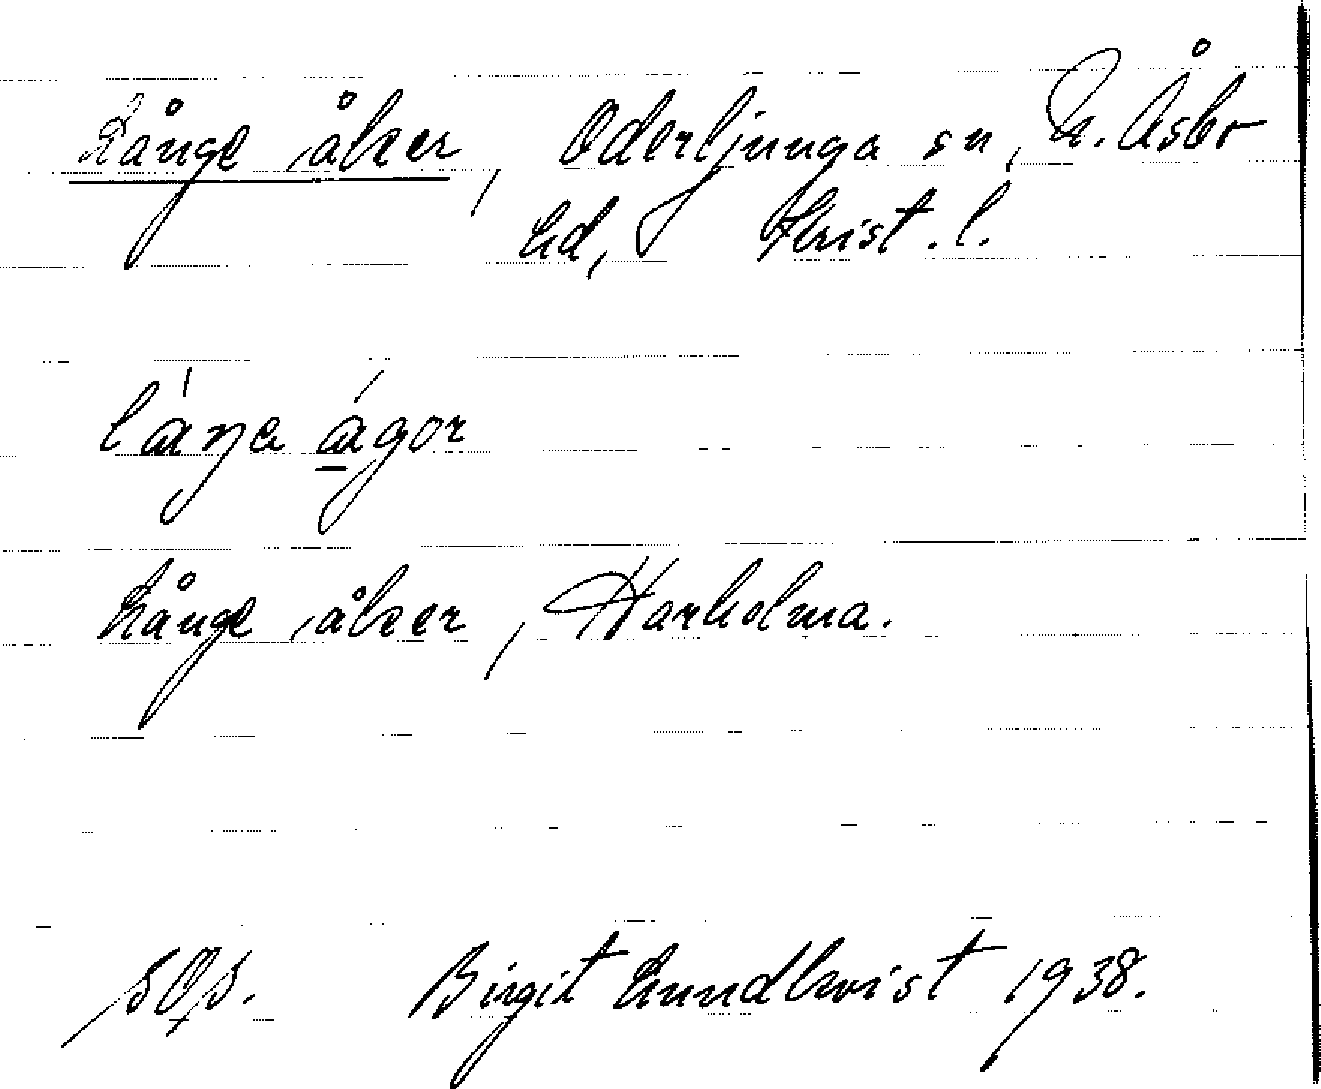 Långe åker, Oderljunga sn, N. Åsbo
hd, Krist. l.
láŋa ágor
Långe åker, Harholma.
Birgit Lundkvist 1938.